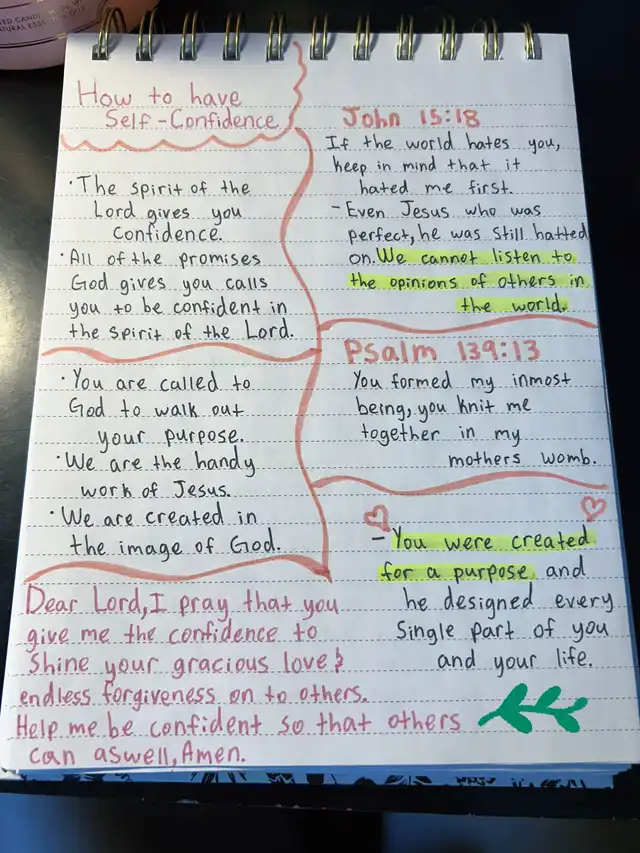 How to have
Self-Confidence
• The spirit of the
Lord gives you
confidence.
• All of the promises
God gives you calls
you to be confident in
the spirit of the Lord.
• You are called to
God to walk out
your purpose.
• We are the handy
work of Jesus.
• We are created in
the image of God.
Dear Lord, I pray that you
give me the confidence to
shine your gracious love &
endless forgiveness on to others.
Help me be confident so that others
can aswell, Amen.
John 15:18
If the world hates you,
keep in mind that it
hated me first.
- Even Jesus who was
perfect, he was still hatted
on. We cannot listen to
the opinions of others in
the world.
Psalm 139:13
You formed my inmost
being, you knit me
together in my
mothers womb.
- You were created
for a purpose and
he designed every
single part of you
and your life.